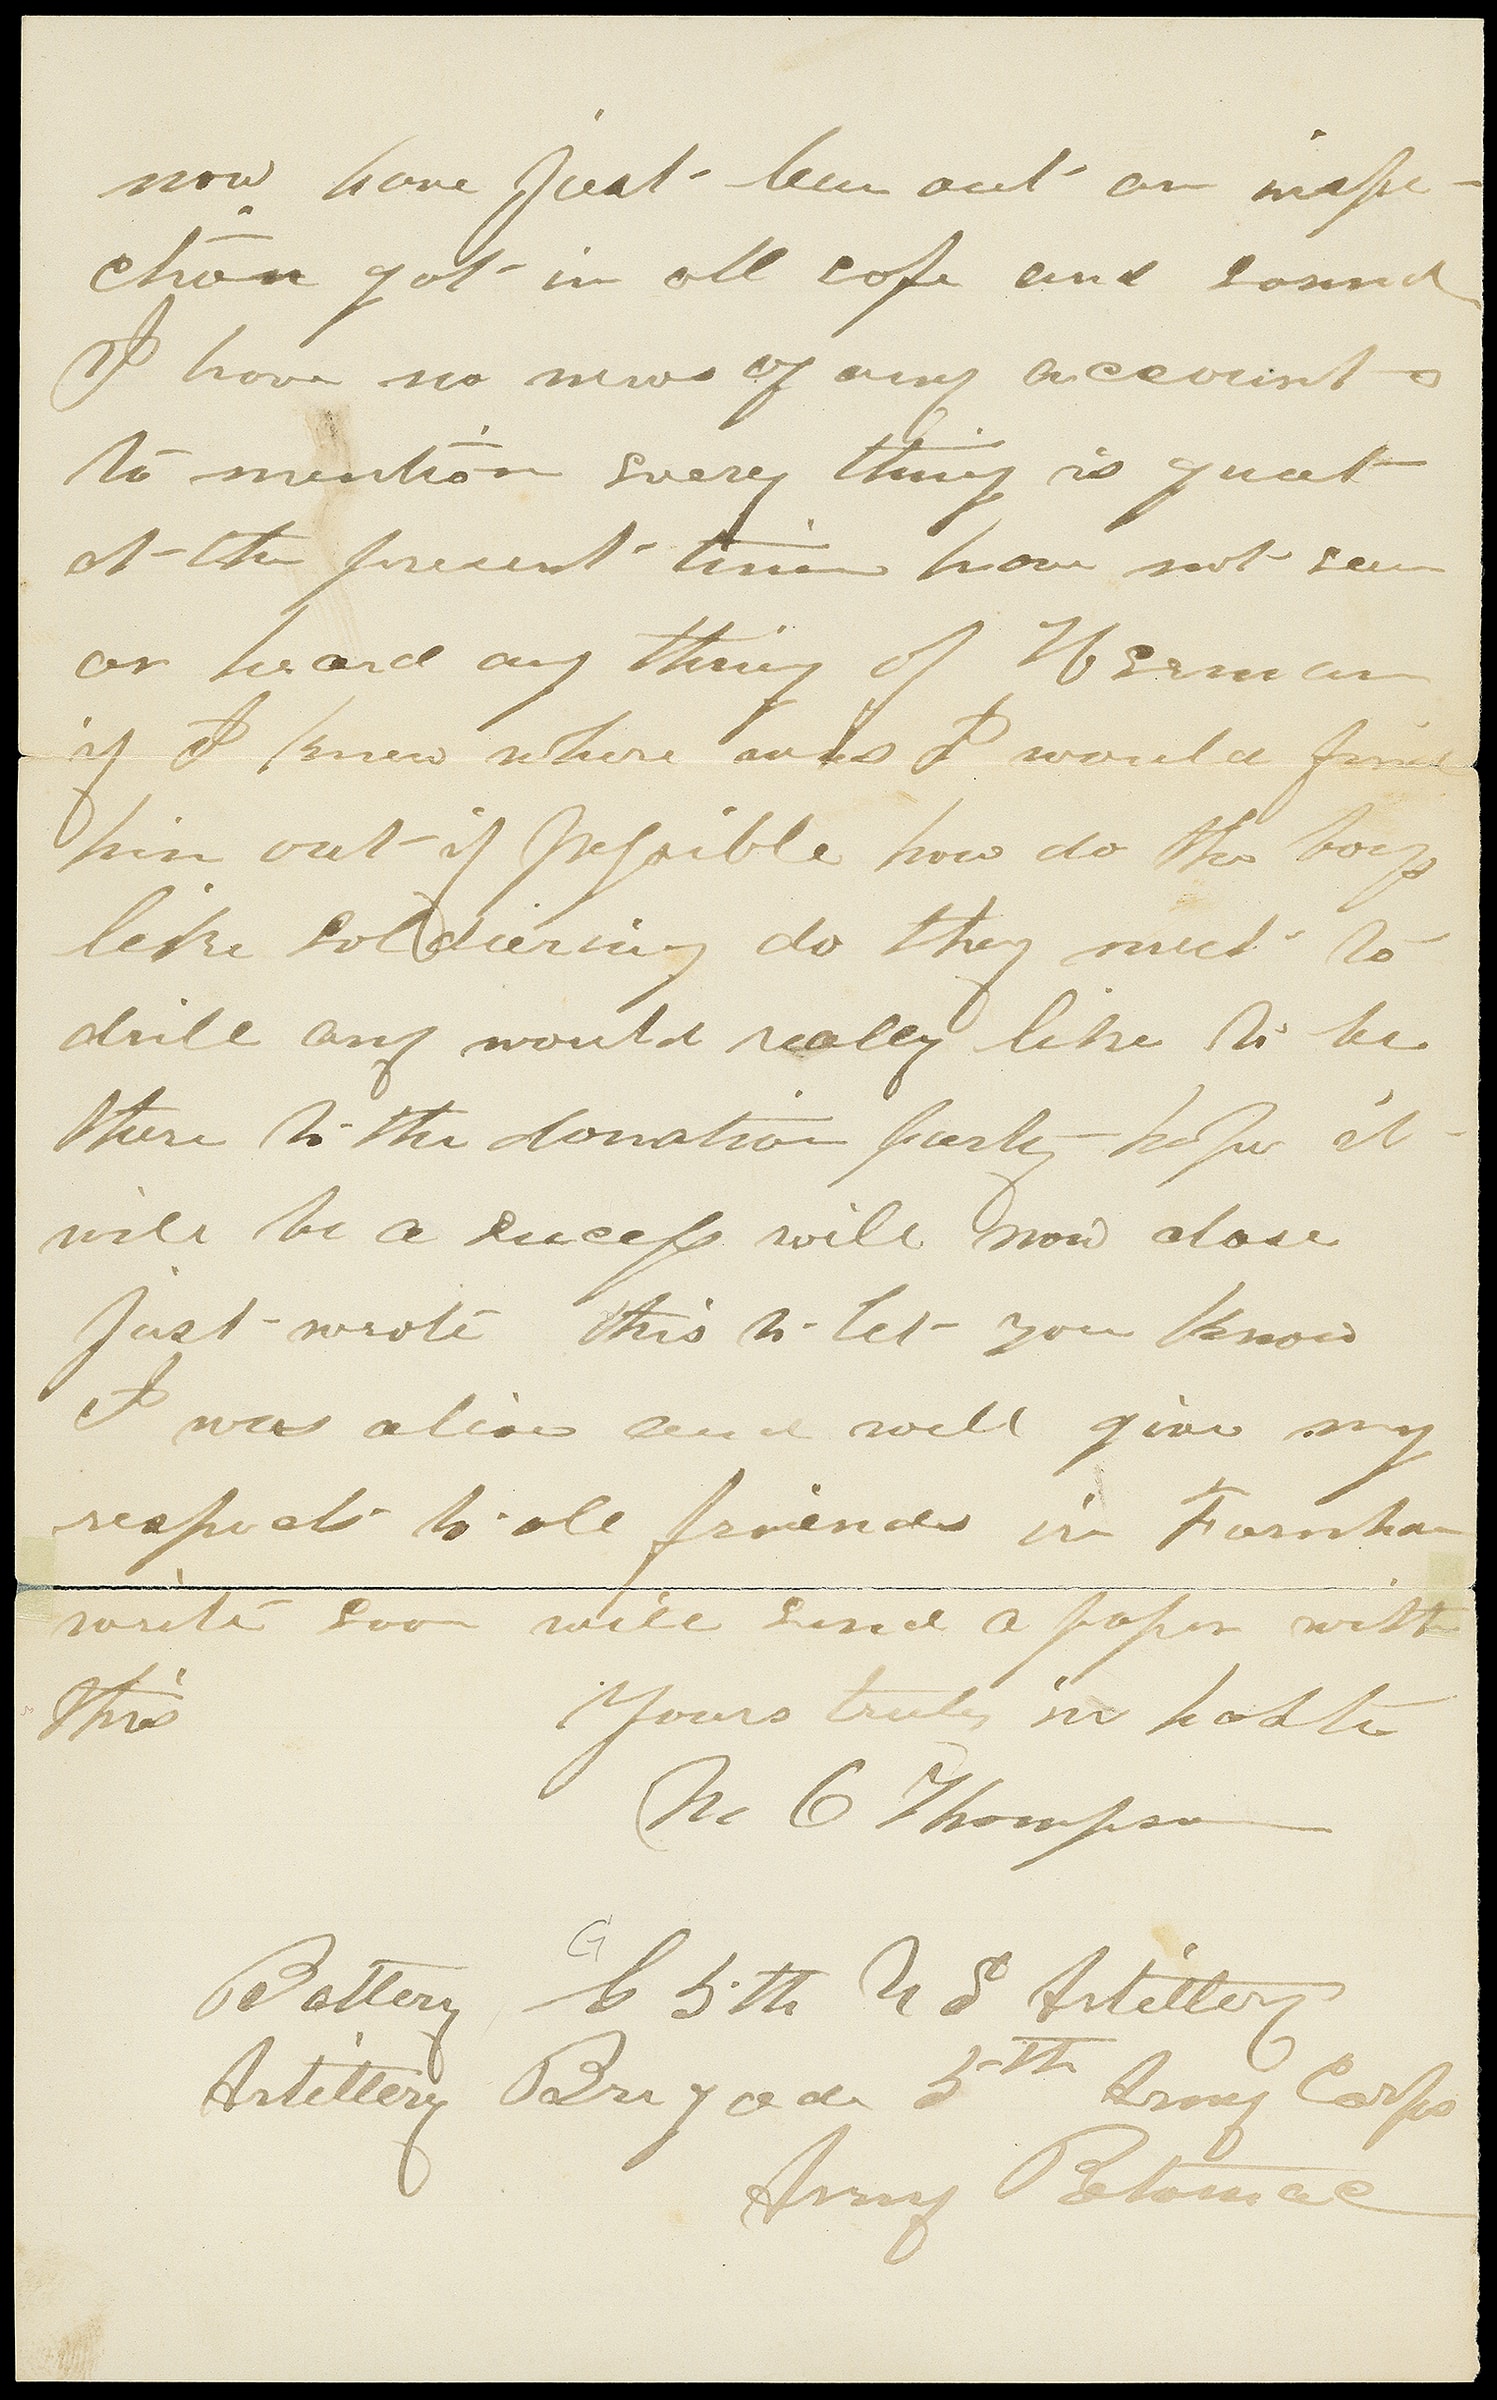 now have just been out on inspe-
ction got in all safe and sound
I have no news of any account
to mention every thing is quiet
at the present time have not seen
or heard any thing of Herman
if I knew where was I would find
him out if possible how do the boys
like soldiering do they meet to
drill any would really like to be
there to the donation party hope it
will be a success will now close
just wrote this to let you know
I was alive and well give my
respects to all friends in Farnham
write soon will send a paper with
this Yours truly in haste
C Thompson
G
Battery C 5th U S Artillery
Artillery Brigade 5th Army Corps
Army Potomac